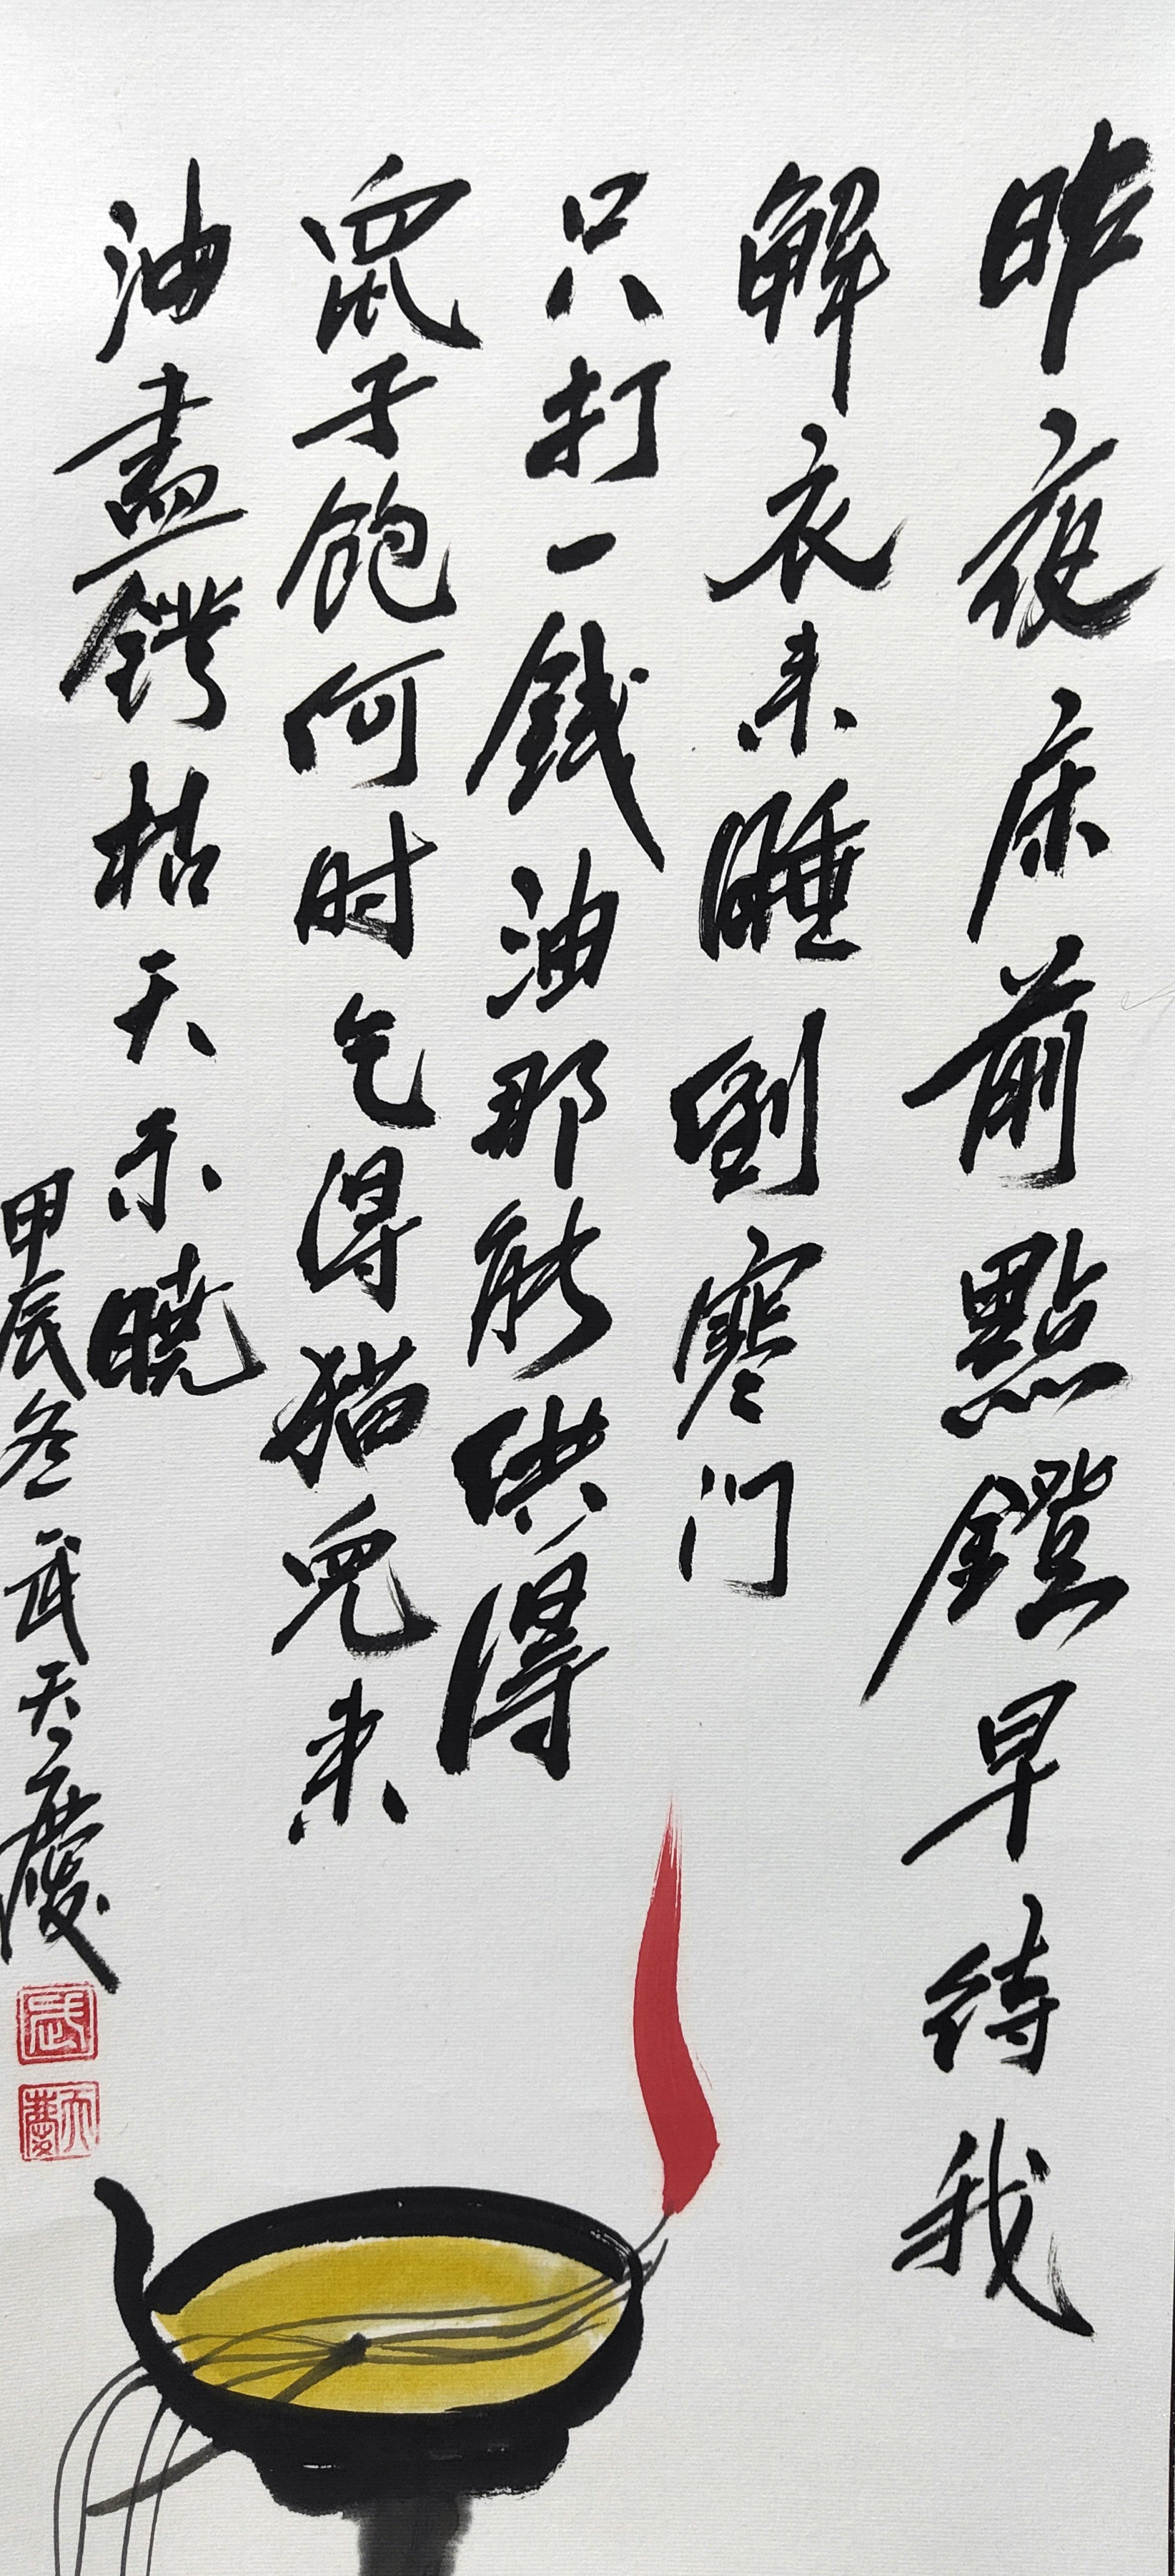 昨夜床前點鐙早待我
解衣未睡倒寒门
只打一錢油那能供得
鼠子飽何时乞得猫兒来
油盡鐙枯天未曉
甲辰冬武天慶
武
天慶